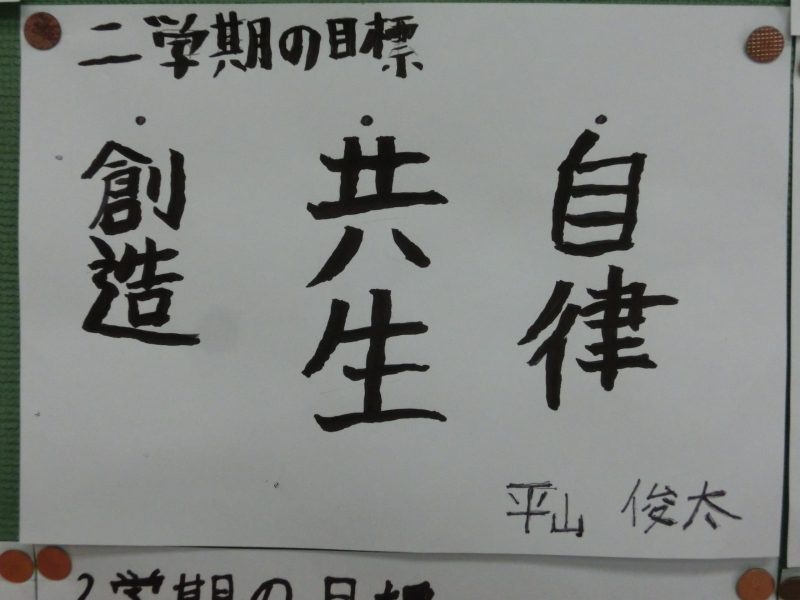 二学期の目標
・自律
・共生
・創造
平山 俊太
2学期の目標